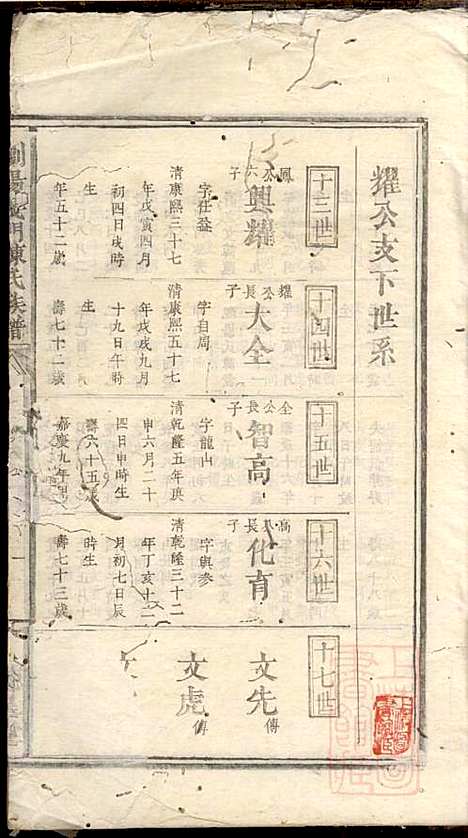 耀公支下世系
十三世
鳳公六子
興耀
字仕益
清康熙三十七
年戊寅四月
初四日戌時
生
年五十二歲
十四世
耀公長子
大全
字自周
清康熙五十七
年戊戌九月
十九日午時
生
壽七十二歲
十五世
全公長子
智高
字龍山
清乾隆五年庚
申六月二十
四日申時生
壽六十五歲
嘉慶九年甲
十六世
高公長子
化育
字與參
清乾隆三十二
年丁亥十二
月初七日辰
時生
壽七十三歲
十七世
文先傳
文虎傳
文
陳氏族譜